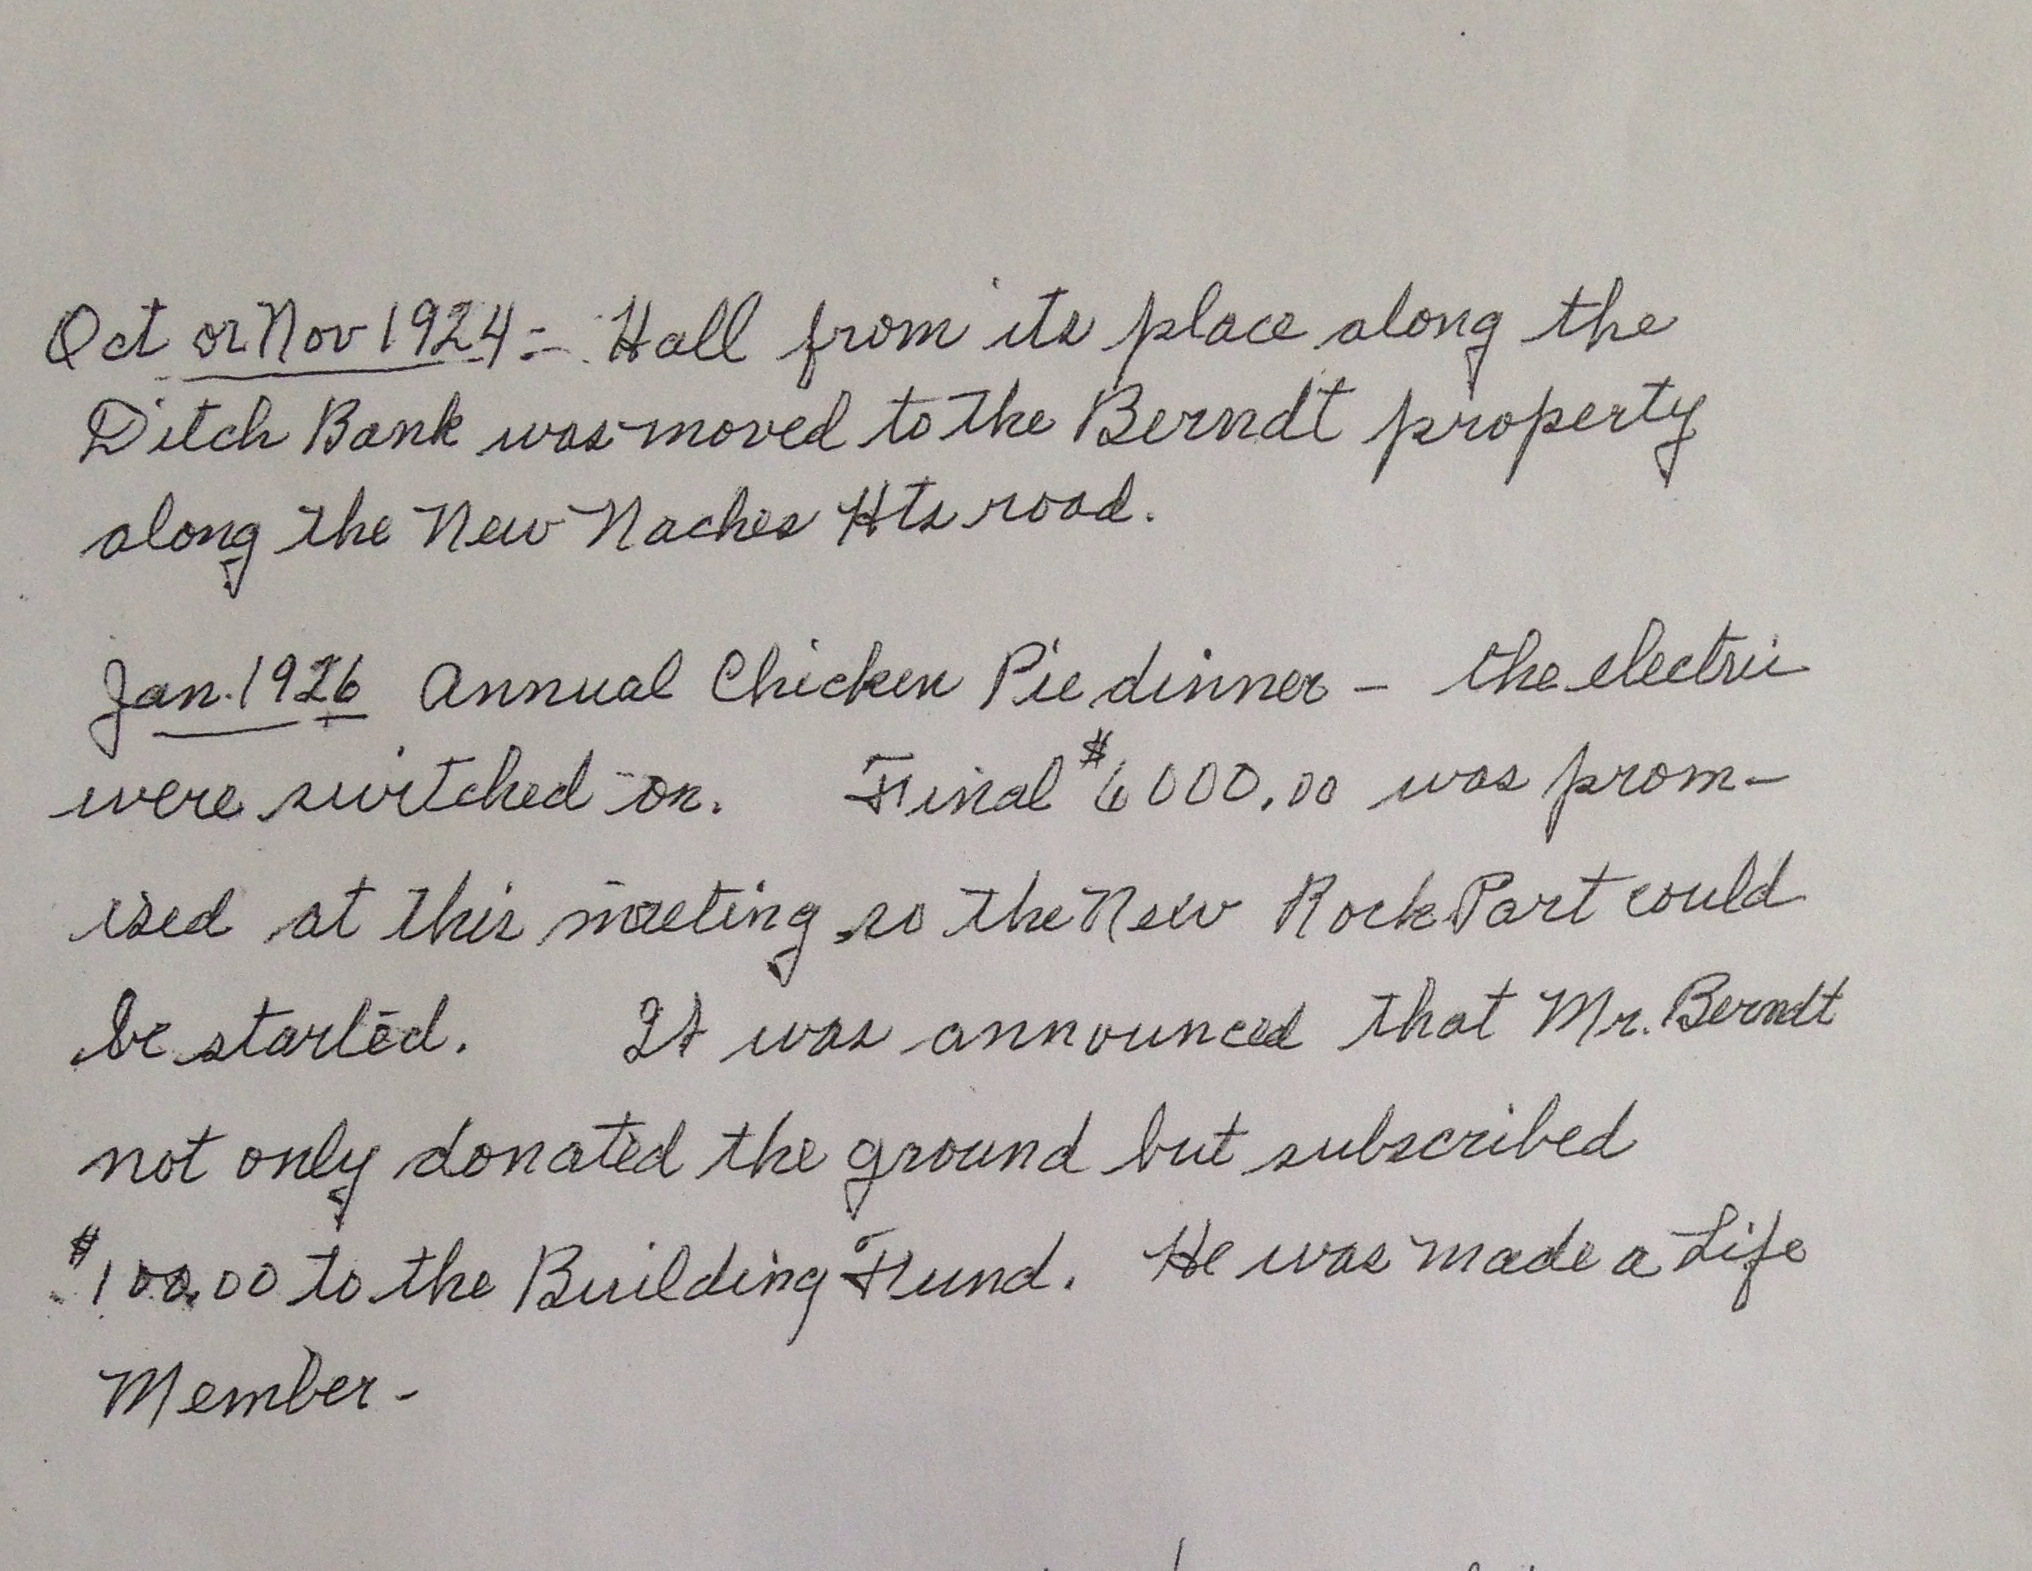 Oct or Nov 1924 - Hall from its place along the
Ditch Bank was moved to the Berndt property
along the New Naches Hts road.
Jan. 1926 Annual Chicken Pie dinner - the electric
were switched on. Final $6000.00 was prom-
ised at this meeting so the New Rock Part could
be started. It was announced that Mr. Berndt
not only donated the ground but subscribed
$100.00 to the Building Fund. He was made a Life
Member -